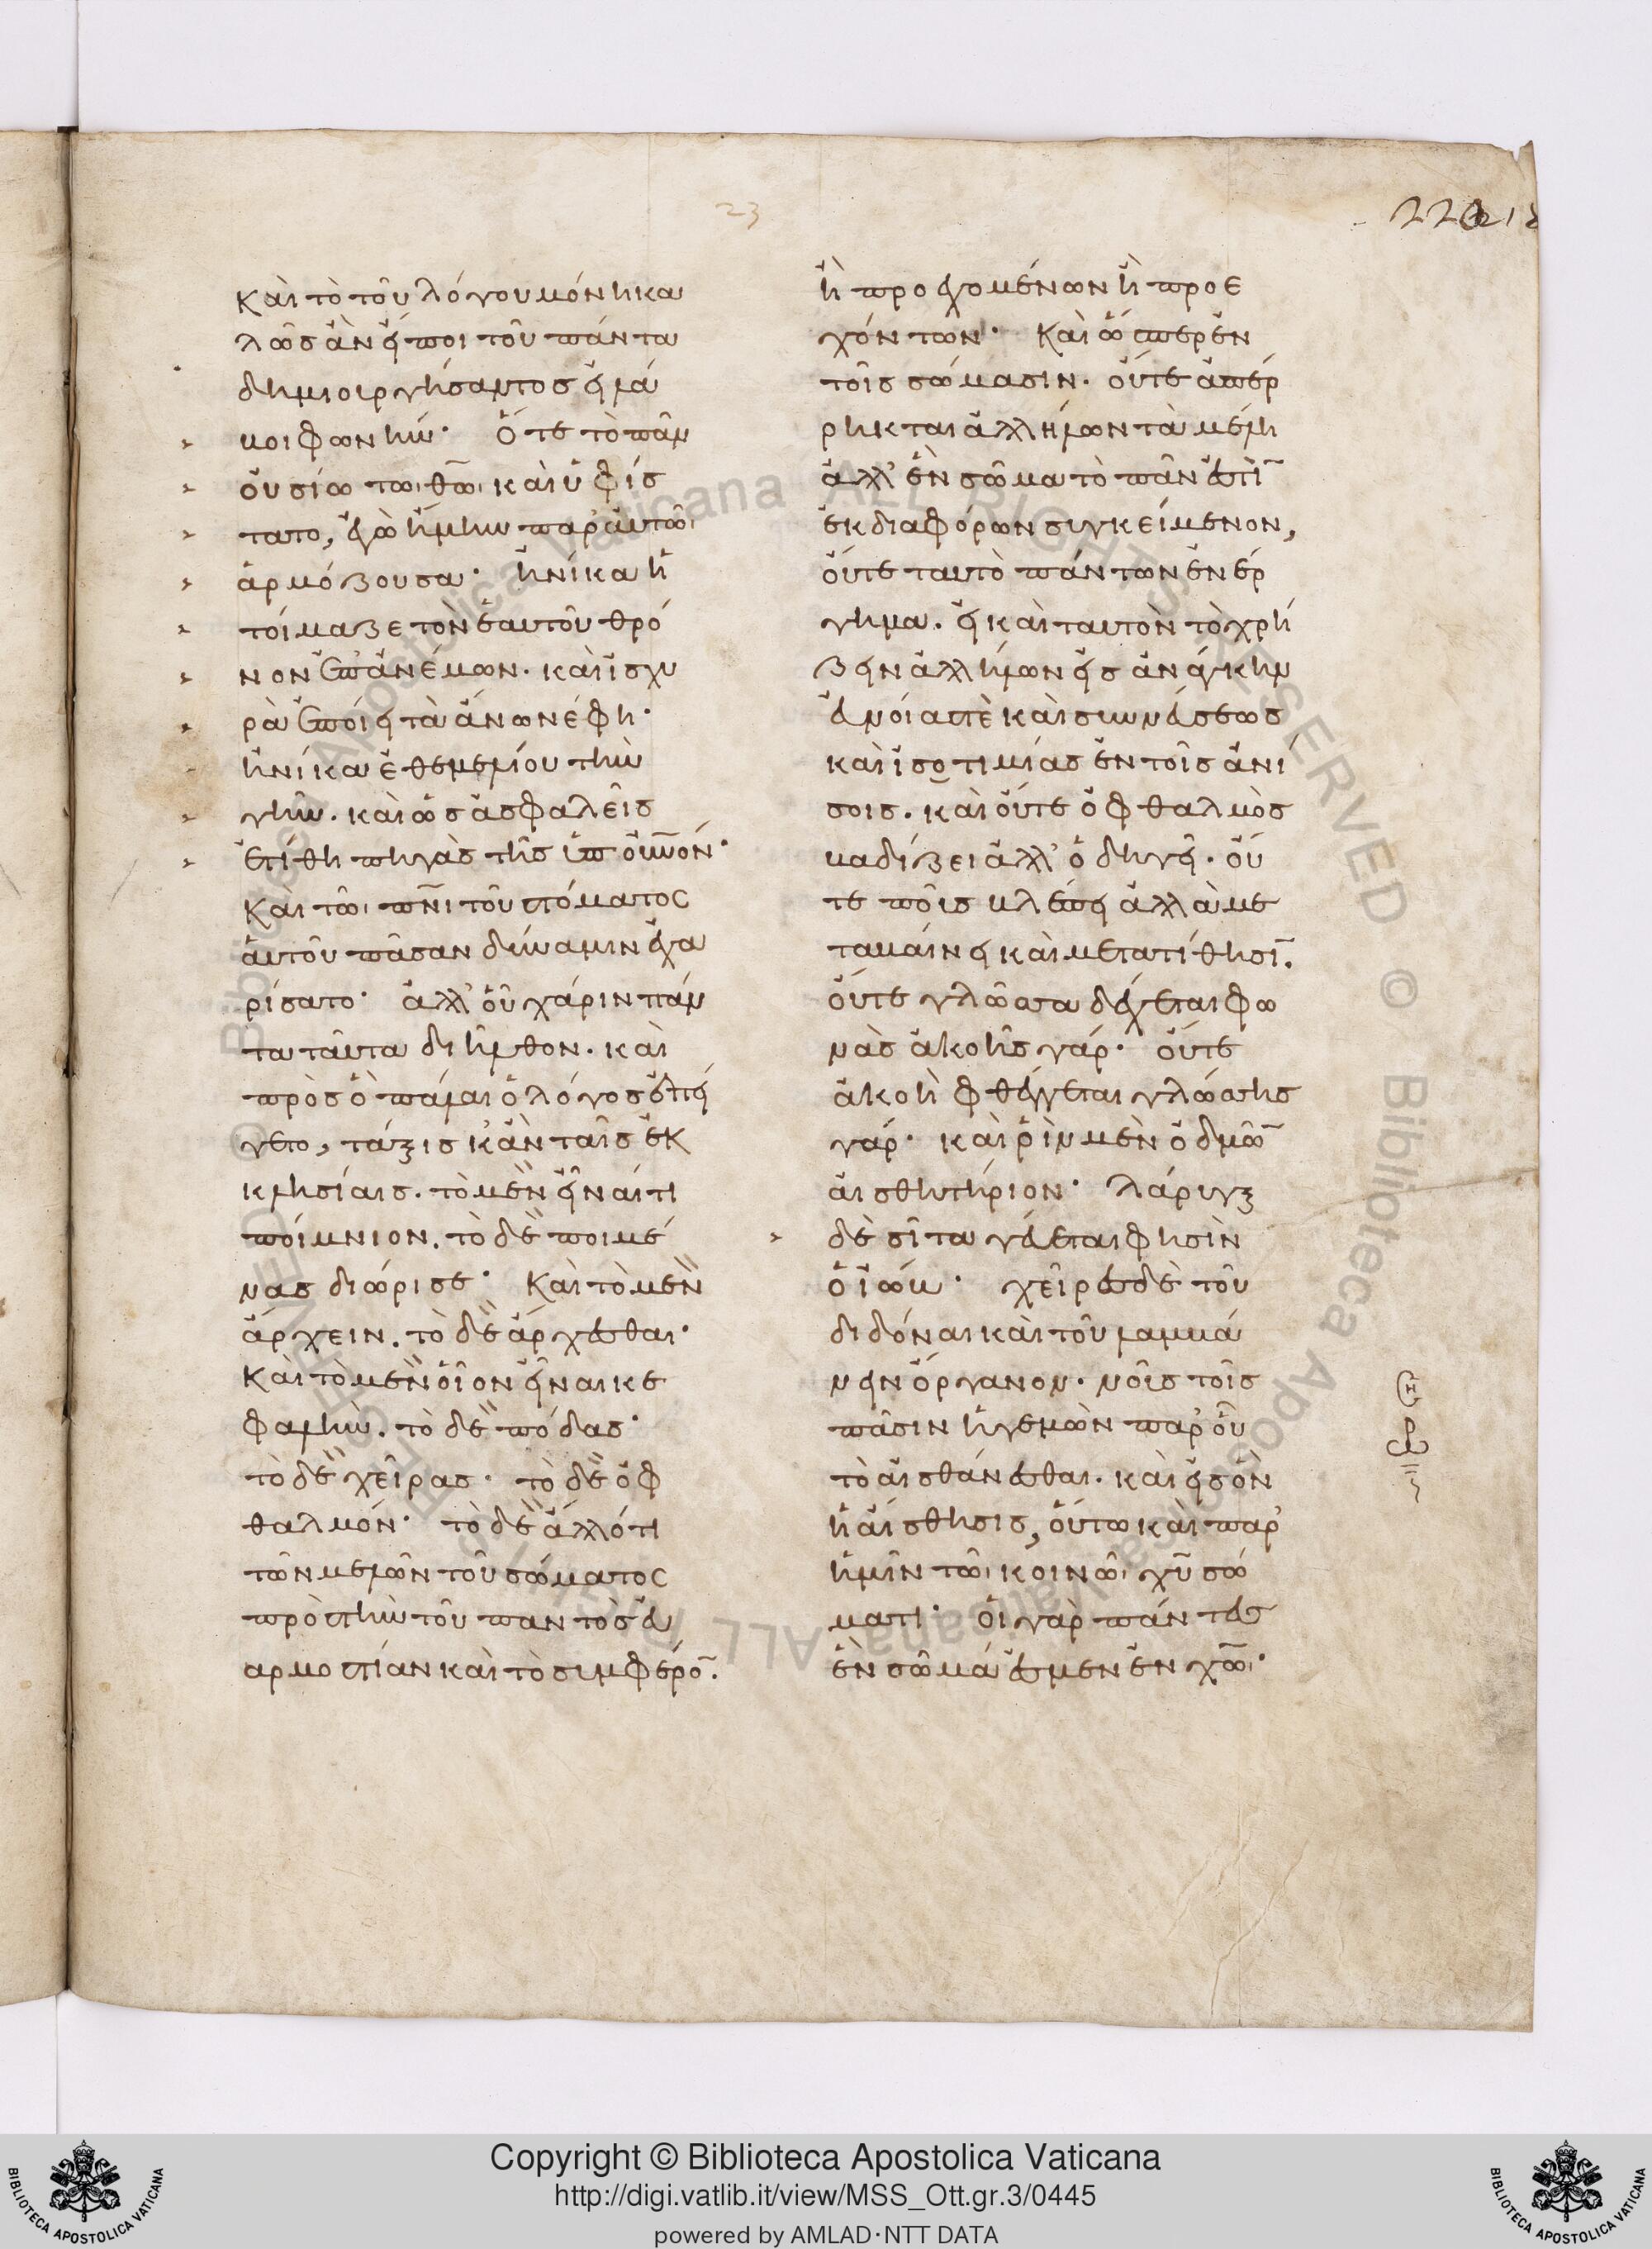 23
220
καὶ τὸ τοῦ λόγου μόνη κα
λῶς ἂν εἴποι τοῦ πάντα
δημιουργήσαντος εἰμὰ
κοι φωνήν· Ὅτε τὸ πᾶν
οὐσίω τῶ θῶ καὶ ὑφίς
τατο, ἐγὼ ἤμην παρ' αὐτῶ
ἁρμόζουσα· ἡνίκα ἡ
τοίμαζε τὸν ἑαυτοῦ θρό
νον ἐπ' ἀνέμων. καὶ ἰσχυ
ρὰ ἐποίει τὰ ἄνω νέφη·
ἡνίκα ἐθεμελίου τὴν
γῆν. καὶ ὡς ἀσφαλεῖς
ἐτίθη πηγὰς τῆς ὑπ' οὐνόν·
Καὶ τῶ πνι τοῦ στόματος
αὐτοῦ πᾶσαν δύναμιν ἐχα
ρίσατο· ἀλλ' οὗ χάριν πάν
τα ταῦτα διῆλθον. καὶ
πρὸς ὃ πάλαι ὁ λόγος ἠπεί
γετο, τάξις κἂν ταῖς ἐκ
κλησίαις. τὸ μὲν εἶναί τι
ποίμνιον. τὸ δὲ ποιμέ
νας διώρισε· Καὶ τὸ μὲν
ἄρχειν. τὸ δὲ ἄρχεσθαι·
Καὶ τὸ μὲν οἷον εἶναι κε
φαλήν. τὸ δὲ πόδας·
τὸ δὲ χεῖρας· τὸ δὲ ὀφ
θαλμόν· τὸ δὲ ἄλλό τι
τῶν μελῶν τοῦ σώματος
πρὸς τὴν τοῦ παντὸς εὐ
αρμοστίαν καὶ τὸ συμφέρον.
ἢ προεχομένων ἢ προε
χόντων· Καὶ ὥσπερ ἐν
τοῖς σώμασιν. οὔτε ἀπέρ
ρηκται ἀλλήλων τὰ μέλη
ἀλλ' ἓν σῶμα τὸ πᾶν ἐστὶ
ἐκ διαφόρων συγκείμενον,
οὔτε ταυτὸ πάντων ἐνέρ
γημα. εἰ καὶ ταυτὸν τὸ χρή
ζειν ἀλλήλων εἰς ἀνάγκην
εὐνοίας τὲ καὶ συννεύσεως
καὶ ἰσοτιμίας ἐν τοῖς ἀνί
σοις. καὶ οὔτε ὀφθαλμὸς
βαδίζει ἀλλ' ὁδηγεῖ. οὔ
τε ποῦς βλέπει ἀλλὰ με
ταβαίνει καὶ μετατίθησι.
οὔτε γλῶσσα δέχεται φω
νὰς ἀκοῆς γάρ· οὔτε
ἀκοὴ φθέγγεται γλώσσης
γάρ· καὶ ῥὶν μὲν ὀδμῶν
αἰσθητήριον· λάρυγξ
δὲ σῖτα γεύεται φησὶν
ὁ ἰώβ· χεὶρ ἐς δὲ τοῦ
διδόναι καὶ τοῦ λαμβά
νειν ὄργανον. νοῦς τοῖς
πᾶσιν ἡγεμὼν παρ' οὗ
τὸ αἰσθάνεσθαι. καὶ εἰς ὃν
ἡ αἴσθησις, οὕτω καὶ παρ'
ἡμῖν τῶ κοινῶ χῦ σώ
ματι· οἱ γὰρ πάντες
ἓν σῶμά ἐσμεν ἐν χῶ·
Copyright © Biblioteca Apostolica Vaticana
http://digi.vatlib.it/view/MSS_Ott.gr.3/0445
powered by AMLAD·NTT DATA